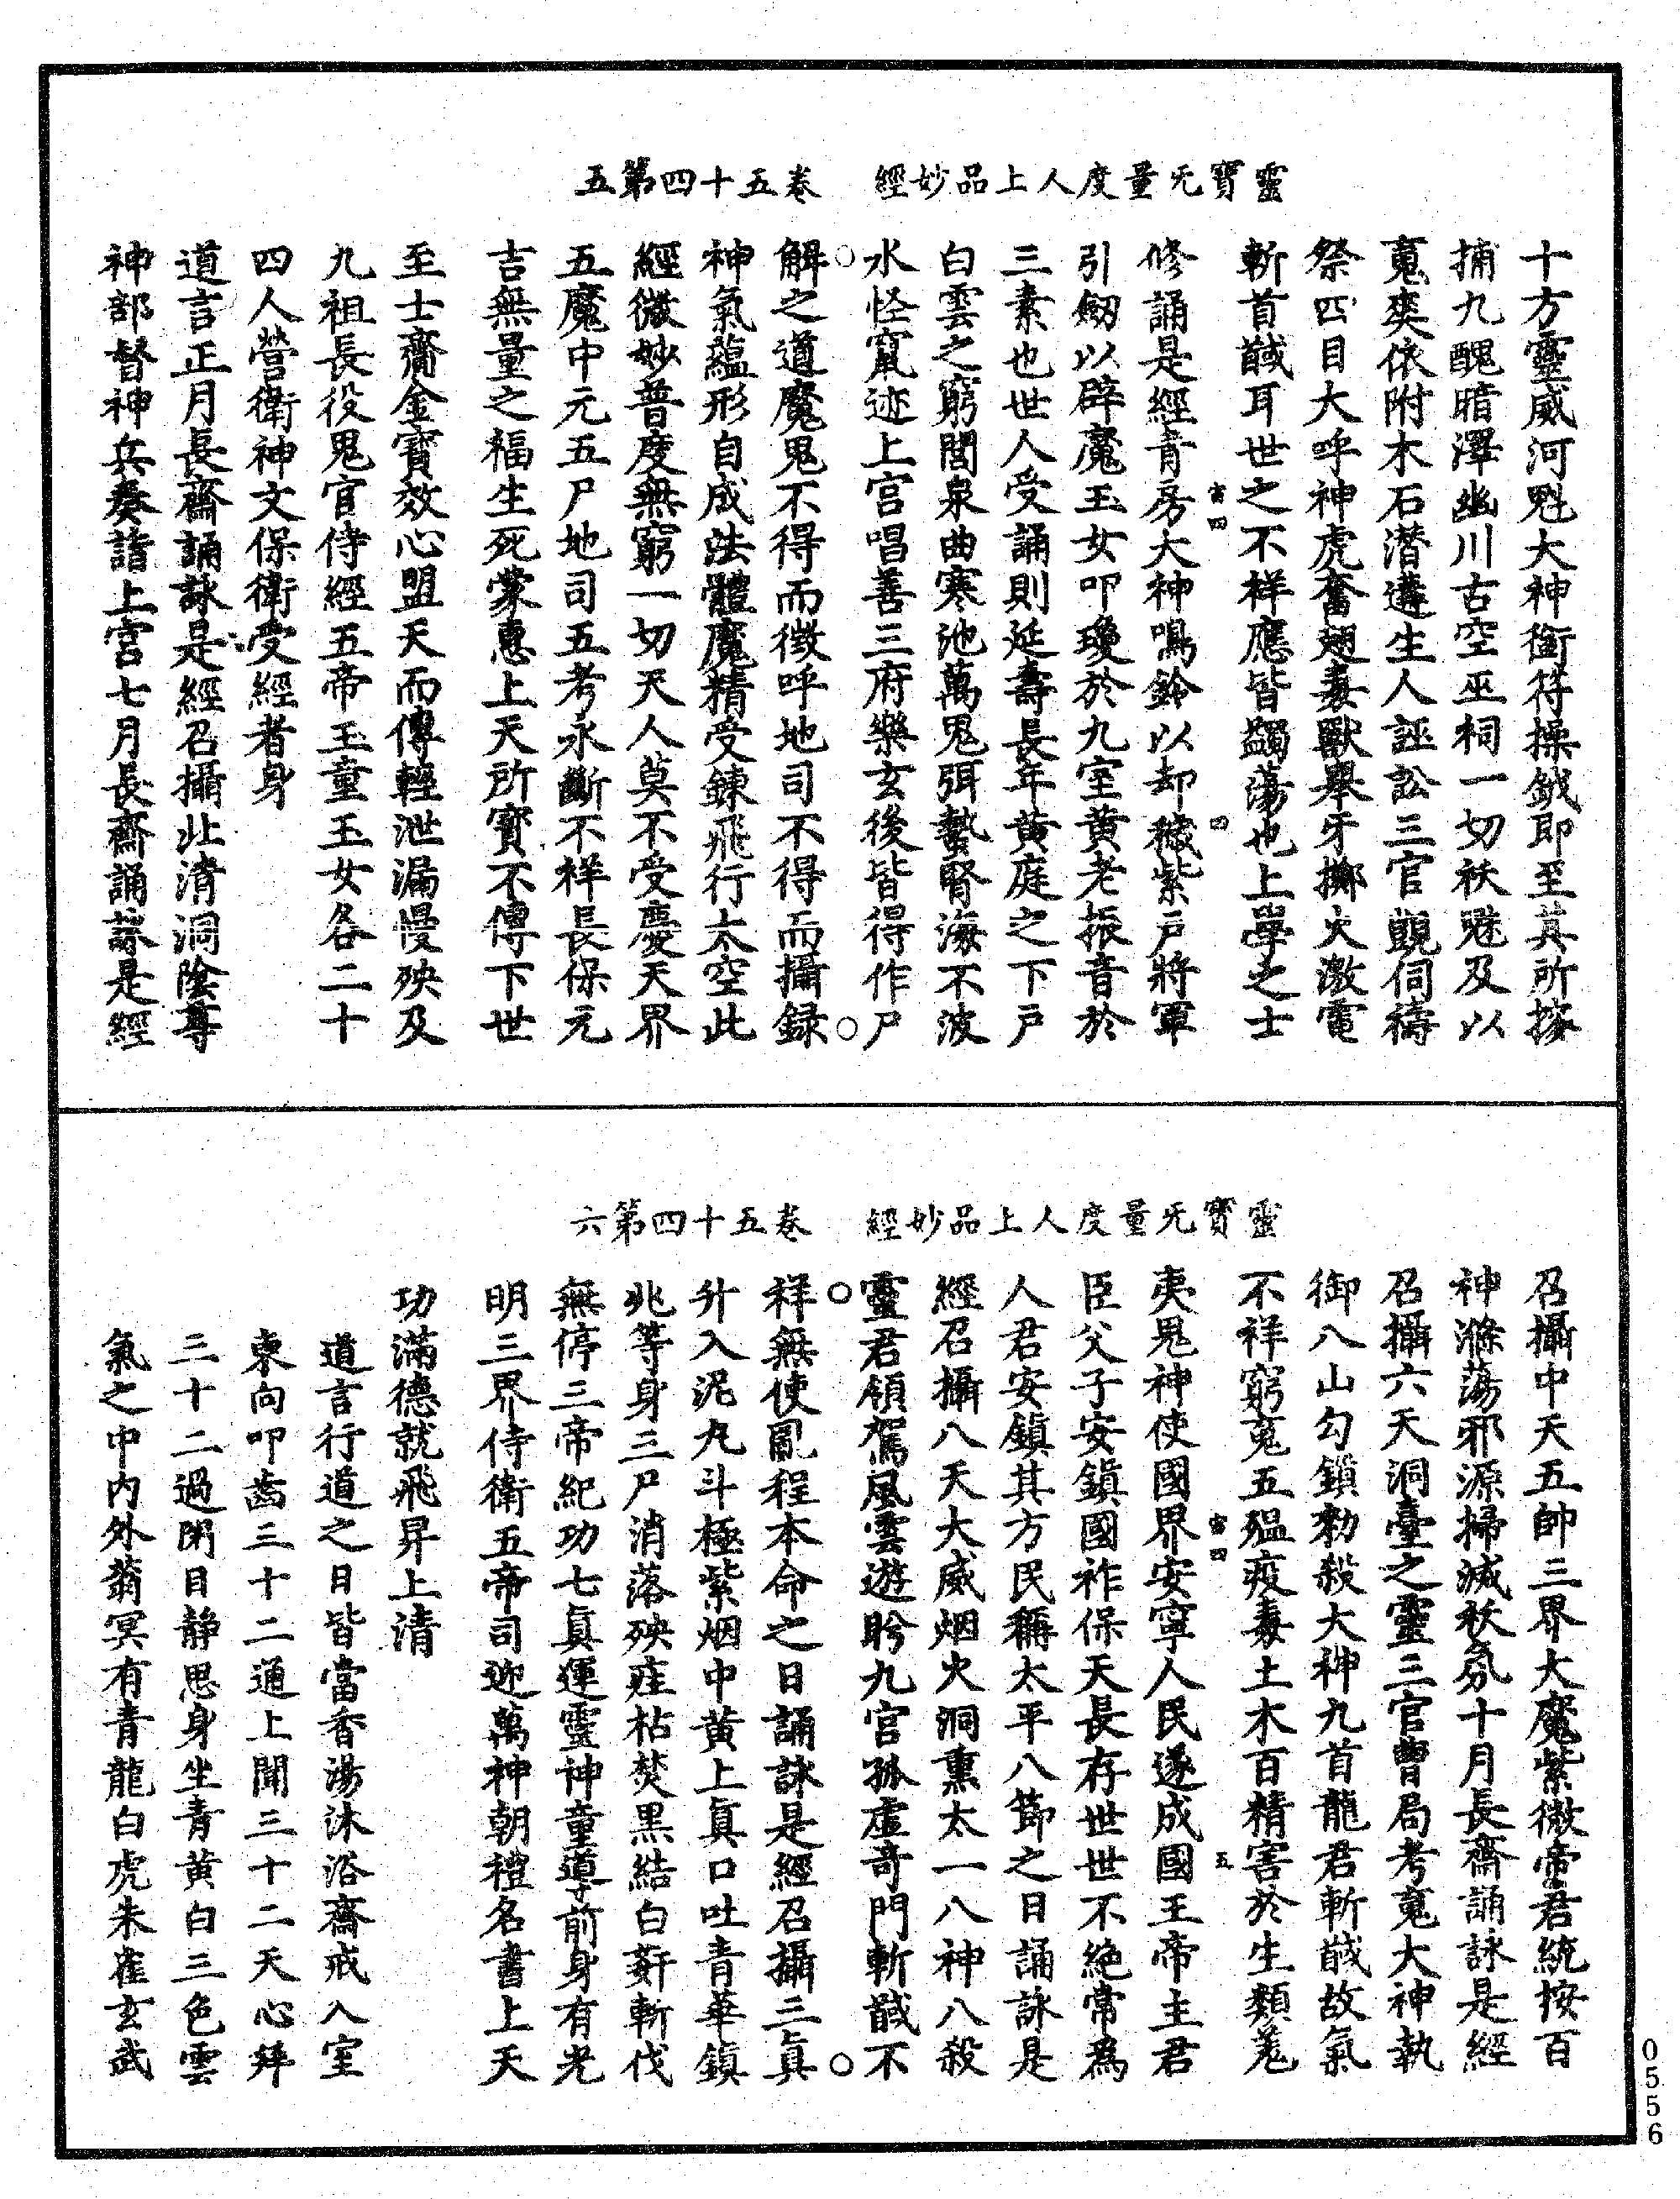 靈寶无量度人上品妙經　卷五十四第五
十方靈威河魁大神衘符操鉞即至其所搜
捕九醜暗澤幽川古空巫祠一切袄魅及以
䰟爽依附木石潛遘生人誣訟三官覬伺禱
祭四目大呼神虎奮翅毒獸舉牙擲火激電
斬首馘耳世之不祥應皆蠲蕩也上學之士
修誦是經青房大神鳴鈴以却穢紫戶將軍
引劒以辟魔玉女叩瓊於九室黃老振音於
三素也世人受誦則延壽長年黃庭之下戶
白雲之窮閭泉曲寒池萬鬼弭蟄腎海不波
水怪竄迹上宮唱善三府樂玄後皆得作尸
解之道魔鬼不得而徵呼地司不得而攝録
神氣蘊形自成法體魔精受鍊飛行太空此
經微妙普度無窮一切天人莫不受慶天界
五魔中元五尸地司五考永斷不祥長保元
吉無量之福生死蒙惠上天所寶不傳下世
至士齎金寶效心盟天而傳輕泄漏慢殃及
九祖長役鬼官侍經五帝玉童玉女各二十
四人營衛神文保衛受經者身
道言正月長齋誦詠是經召攝北清洞陰尊
神部督神兵奏詣上宮七月長齋誦詠是經
靈寶无量度人上品妙經　卷五十四第六
召攝中天五帥三界大魔紫微帝君統按百
神滌蕩邪源掃滅袄氛十月長齋誦詠是經
召攝六天洞臺之靈三官曹局考䰟大神執
御八山勾鎖勑殺大神九首龍君斬馘故氣
不祥窮䰟五瘟疫毒土木百精害於生類蒐
夷鬼神使國界安寧人民遂成國王帝主君
臣父子安鎮國祚保天長存世世不絶常爲
人君安鎮其方民稱太平八節之日誦詠是
經召攝八天大威烟火洞熏太一八神八殺
靈君領駕風雲遊盻九宮孤虛奇門斬馘不
祥無使亂程本命之日誦詠是經召攝三眞
升入泥丸斗極紫烟中黃上眞口吐青華鎮
兆等身三尸消落殃莛枯焚黑結白姧斬伐
無停三帝紀功七眞運靈神童導前身有光
明三界侍衛五帝司迎萬神朝禮名書上天
功滿德就飛昇上清
道言行道之日皆當香湯沐浴齋戒入室
東向叩齒三十二通上聞三十二天心拜
三十二過閉目靜思身坐青黃白三色雲
氣之中内外蓊冥有青龍白虎朱雀玄武
0556